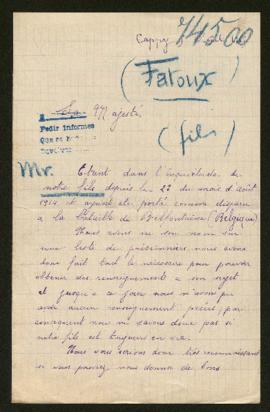 Cappy
74500
(Fatoux)
(fils)
Sa Majesté
Pedir informes
Mr. Etant dans l'inquiétude de
notre fils depuis le 22 du mois d'août
1914 et ayant été porté comme disparu
à la Bataille de (Belgique)
Nous avons vu son nom sur
une liste de prisonniers, nous avons
donc fait tout le nécessaire pour pouvoir
obtenir des renseignements à son sujet
et jusqu'à ce jour nous n'avons pu
avoir aucun renseignement précis, par
conséquent nous ne savons donc pas si
notre fils est toujours en vie.
Nous vous serions donc très reconnaissants
si vous pouviez nous donner de bons